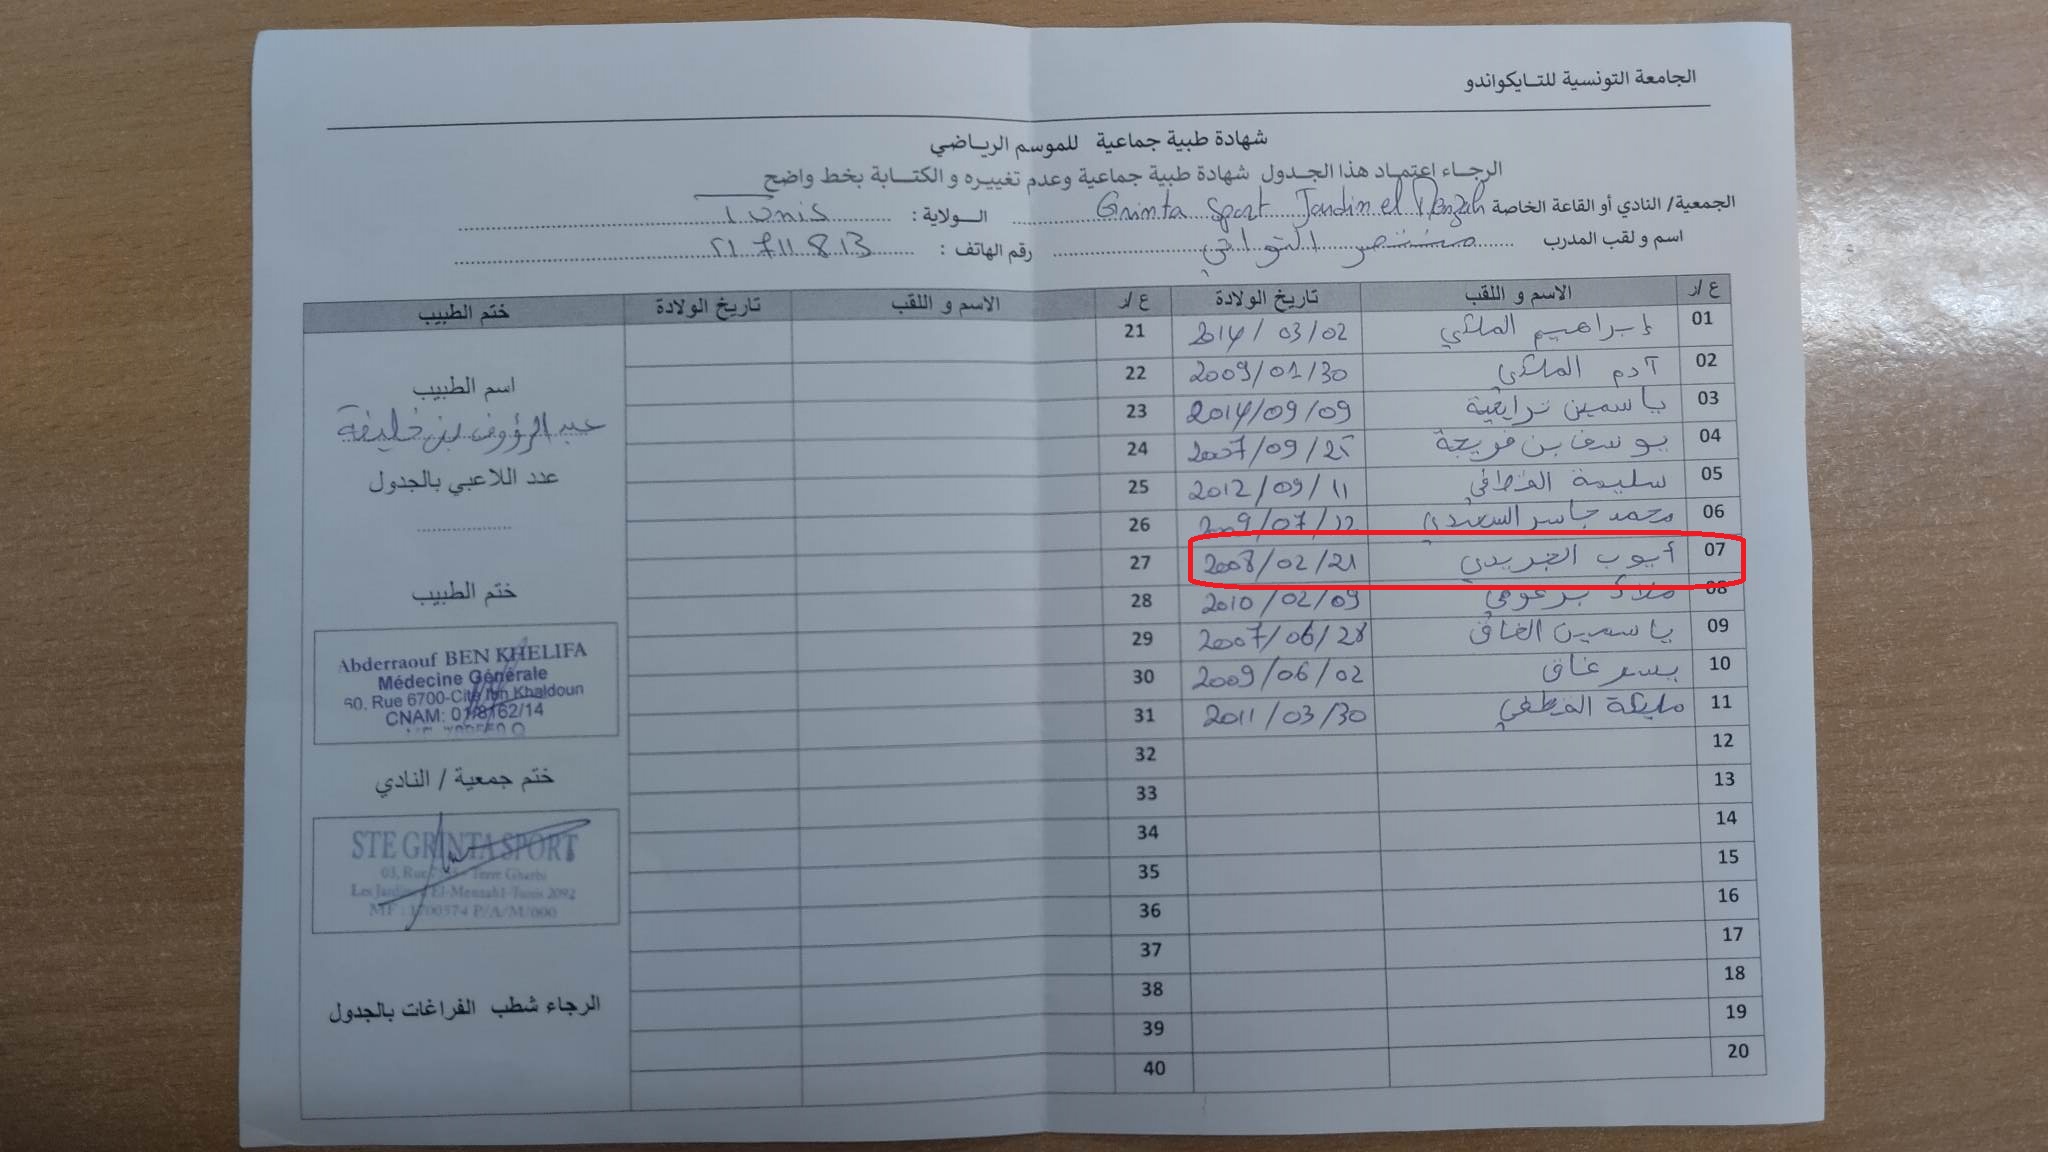 الجامعة التونسية للتايكواندو
شهادة طبية جماعية للموسم الرياضي
الرجاء اعتماد هذا الجدول شهادة طبية جماعية وعدم تغييره و الكتابة بخط واضح
الجمعية/ النادي أو القاعة الخاصة Grinta Sport Jardin el Menzah الولاية : Tunis
اسم و لقب المدرب منتصر رقم الهاتف : 21 711 813
ع /ر الاسم و اللقب تاريخ الولادة ع /ر الاسم و اللقب تاريخ الولادة ختم الطبيب
01 إبراهيم المكي 2014/03/02 21
02 آدم المكي 2009/01/30 22
03 ياسمين 2014/09/09 23
04 يوسف بن فريجة 2007/09/25 24
05 سليمة القطفي 2012/09/11 25
06 محمد جاسر السعيدي 2009/07/12 26
07 أيوب الجريدي 2008/02/21 27
08 2010/02/09 28
09 ياسمين الغاق 2007/06/28 29
10 يسر غاق 2009/06/02 30
11 مليكة القطفي 2011/03/30 31
12 32
13 33
14 34
15 35
16 36
17 37
18 38
19 39
20 40
اسم الطبيب
عبد الرؤوف بن خليفة
عدد اللاعبي بالجدول
ختم الطبيب
Abderraouf BEN KHELIFA
Médecine Générale
60, Rue 6700-Cité Ibn Khaldoun
CNAM: 01/8162/14
ختم جمعية / النادي
STE GRINTA SPORT
03, Rue Terre Gharbi
Les Jardins El-Menzah1-Tunis 2092
MF : 1700574 P/A/M/000
الرجاء شطب الفراغات بالجدول